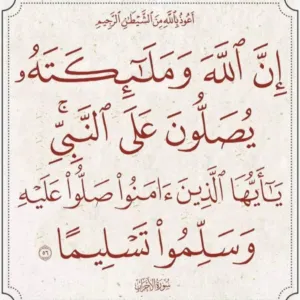 أَعُوذُ بِٱللَّهِ مِنَ ٱلشَّيْطَٰنِ ٱلرَّجِيمِ
إِنَّ ٱللَّهَ وَمَلَٰٓئِكَتَهُۥ
يُصَلُّونَ عَلَى ٱلنَّبِىِّۚ
يَٰٓأَيُّهَا ٱلَّذِينَ ءَامَنُوا۟ صَلُّوا۟ عَلَيْهِ
وَسَلِّمُوا۟ تَسْلِيمًا ٥٦
سُورَةُ الأَحْزَابِ